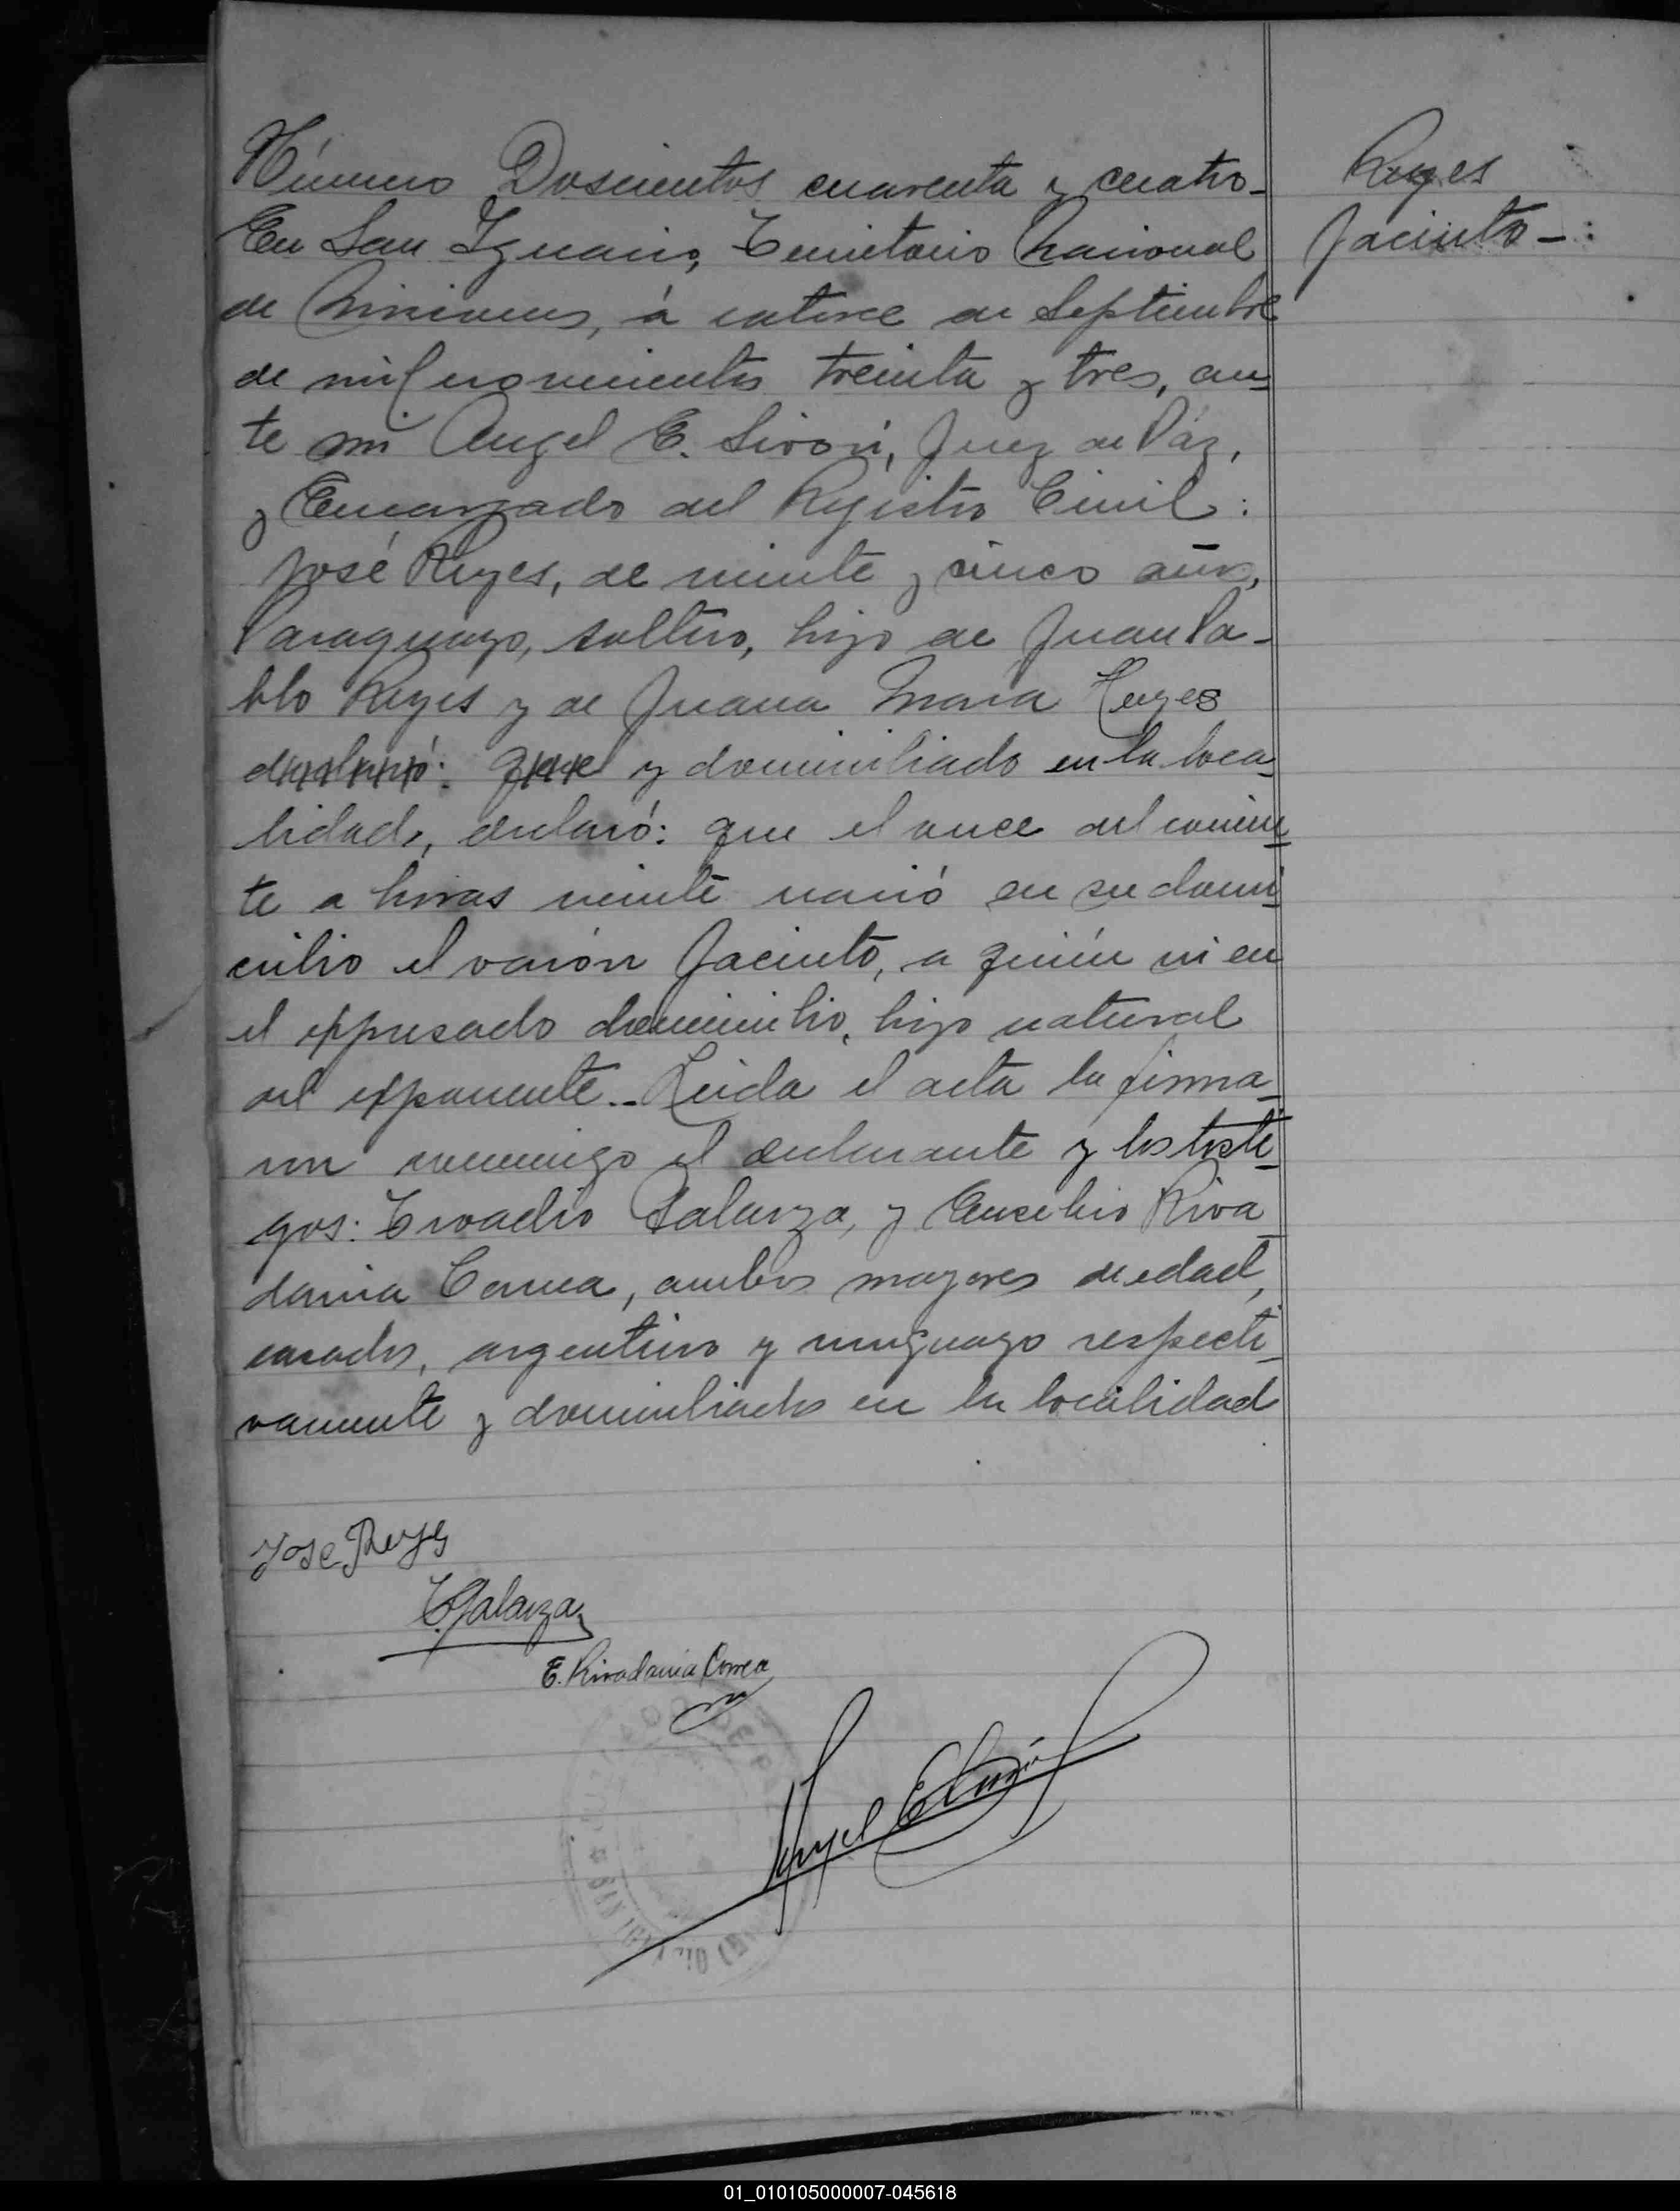 Número Doscientos cuarenta y cuatro-
En San Ignacio, Territorio Nacional
de Misiones, á catorce de Septiembre
de mil novecientos treinta y tres, an-
te mi Angel E. Sirori, Juez de Páz,
y Encargado del Registro Civil:
José Reyes, de veinte y cinco años,
Paraguayo, soltero, hijo de Juan Pa-
blo Reyes y de Juana Maria Reyes
declaró: que y domiciliado en la loca-
lidad, declaró: que el once del corrien-
te a horas veinte nació en su domi-
cilio el varón Jacinto, a quién vi en
el expresado domicilio, hijo natural
del exponente.- Leida el acta la firma-
ron conmigo el declarante y los testi-
gos: Galarza, y Eusebio Riva-
davia Correa, ambos mayores de edad,
casados, argentino y uruguayo respecti-
vamente y domiciliados en la localidad
Reyes
Jacinto-:
Jose Reyes
Galarza
E. Rivadavia Correa
Angel E.
01_010105000007-045618